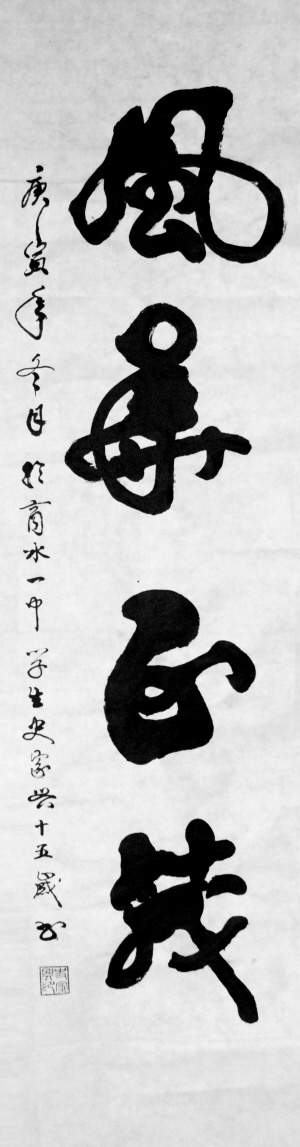 風華正茂
庚寅年冬月於商水一中学生史家兴十五歲书